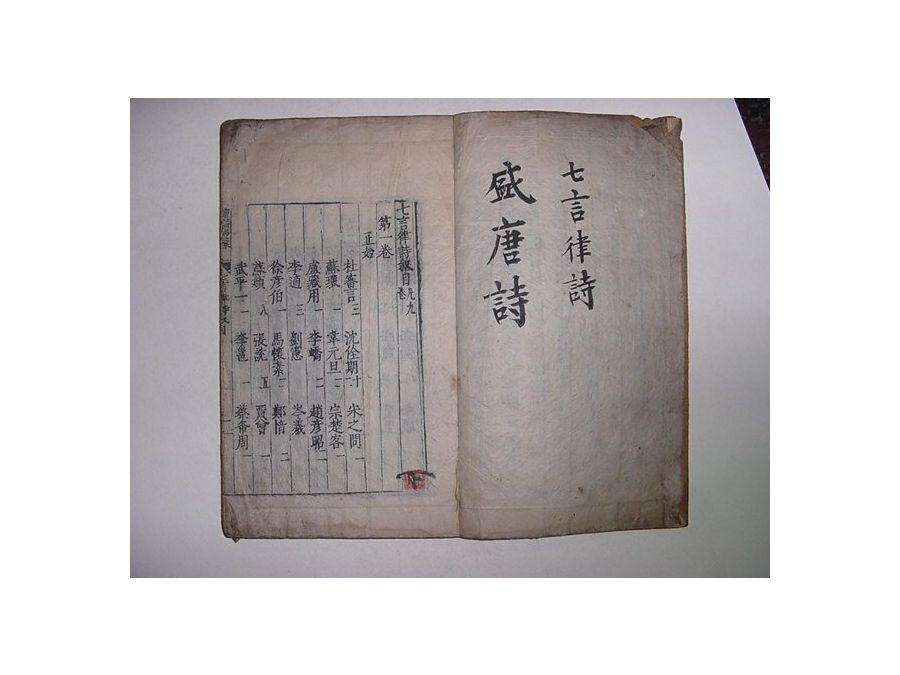 七言律詩
盛唐詩
七言律詩目凡九卷
第一卷
正始
杜審言三 沈佺期十 宋之問一
蘇瓌一 韋元旦二 宗楚客一
盧藏用一 李嶠二 趙彦昭二
李適三 劉憲 岑羲
徐彦伯一 馬懷素二 鄭愔二
蘇頲八 張說五 賈曾一
武平一一 李邕一 蔡希周一